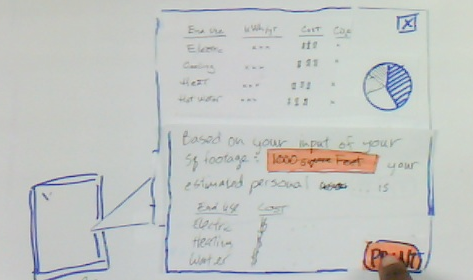 End Use kWh/yr Cost CO2
Electric " " " $$$ "
Cooling " " " $$$ "
Heat " " " $$$ "
Hot Water " " " $$$ "
X
Based on your input of your
sq footage: 1000 square feet your
estimated personal ... is
End Use Cost
Electric $
Heating $
Water $
PRINT